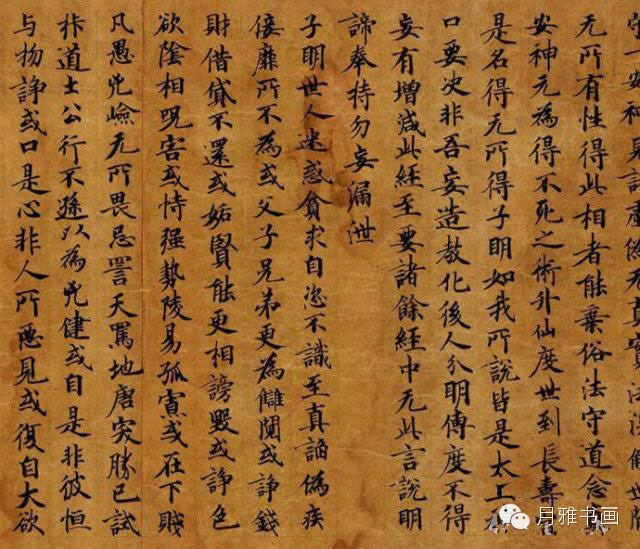 守一安神
无所有性得此相者能棄俗法守道念
安神无為得不死之術升仙度世到長壽
是名得无所得子明如我所說皆是太上
口要决非吾妄造教化後人分明傳度不得
妄有增減此經至要諸餘經中无此言說明
諦奉持勿妄漏泄
子明世人迷惑貪求自恣不識至真諂偽疾
侫靡所不為或父子兄弟更為讎鬩或諍錢
財借貸不還或妬賢能更相謗毀或諍色
欲陰相呪害或恃强勢陵易孤寡或在下賤
凡愚兇嶮无所畏忌詈天罵地唐突勝己試
道士公行不遜以為兇健或自是非彼恒
与物諍或口是心非人所惡見或復自大欲
月雅书画